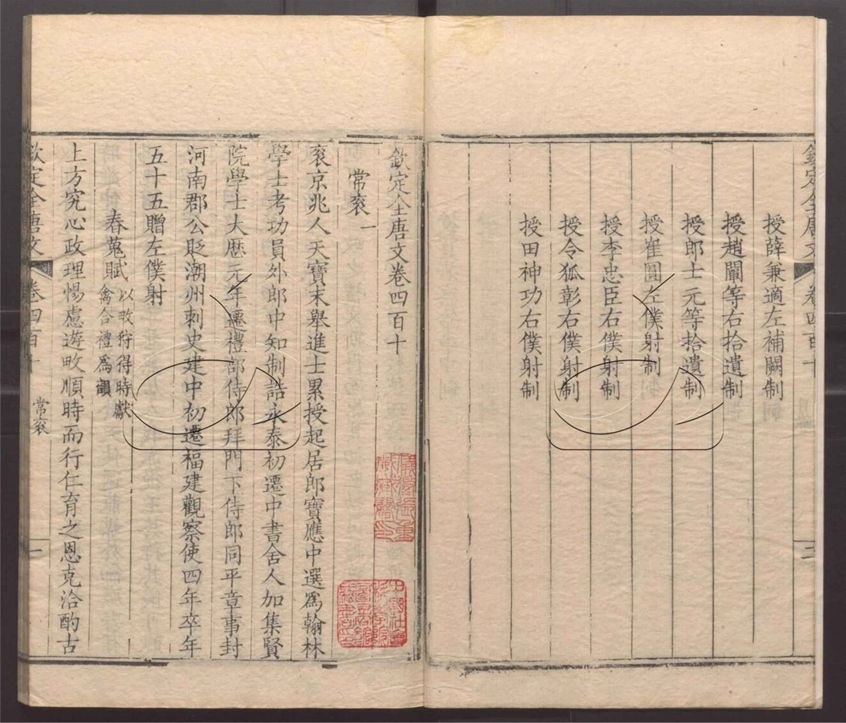 欽定全唐文 卷四百十
授薛兼適左補闕制
授趙闡等右拾遺制
授郎士元等拾遺制
授崔圓左僕射制
授李忠臣右僕射制
授令狐彰右僕射制
授田神功右僕射制
欽定全唐文卷四百十
常袞一
袞京兆人天寶末舉進士累授起居郎寶應中選爲翰林
學士考功員外郎中知制誥永泰初遷中書舍人加集賢
院學士大厯元年遷禮部侍郎拜門下侍郎同平章事封
河南郡公貶潮州刺史建中初遷福建觀察使四年卒年
五十五贈左僕射
春蒐賦 以畋狩得時獻
禽合禮爲韻
上方究心政理惕慮遊畋順時而行仁育之恩克洽酌古
欽定全唐文 卷四百十 常袞 一